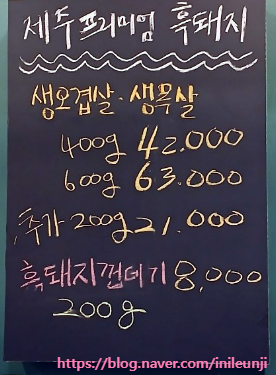 제주 프리미엄 흑돼지
생오겹살·생목살
400g 42.000
600g 63.000
추가 200g 21.000
흑돼지껍데기 8,000
200g
https://blog.naver.com/inileunji